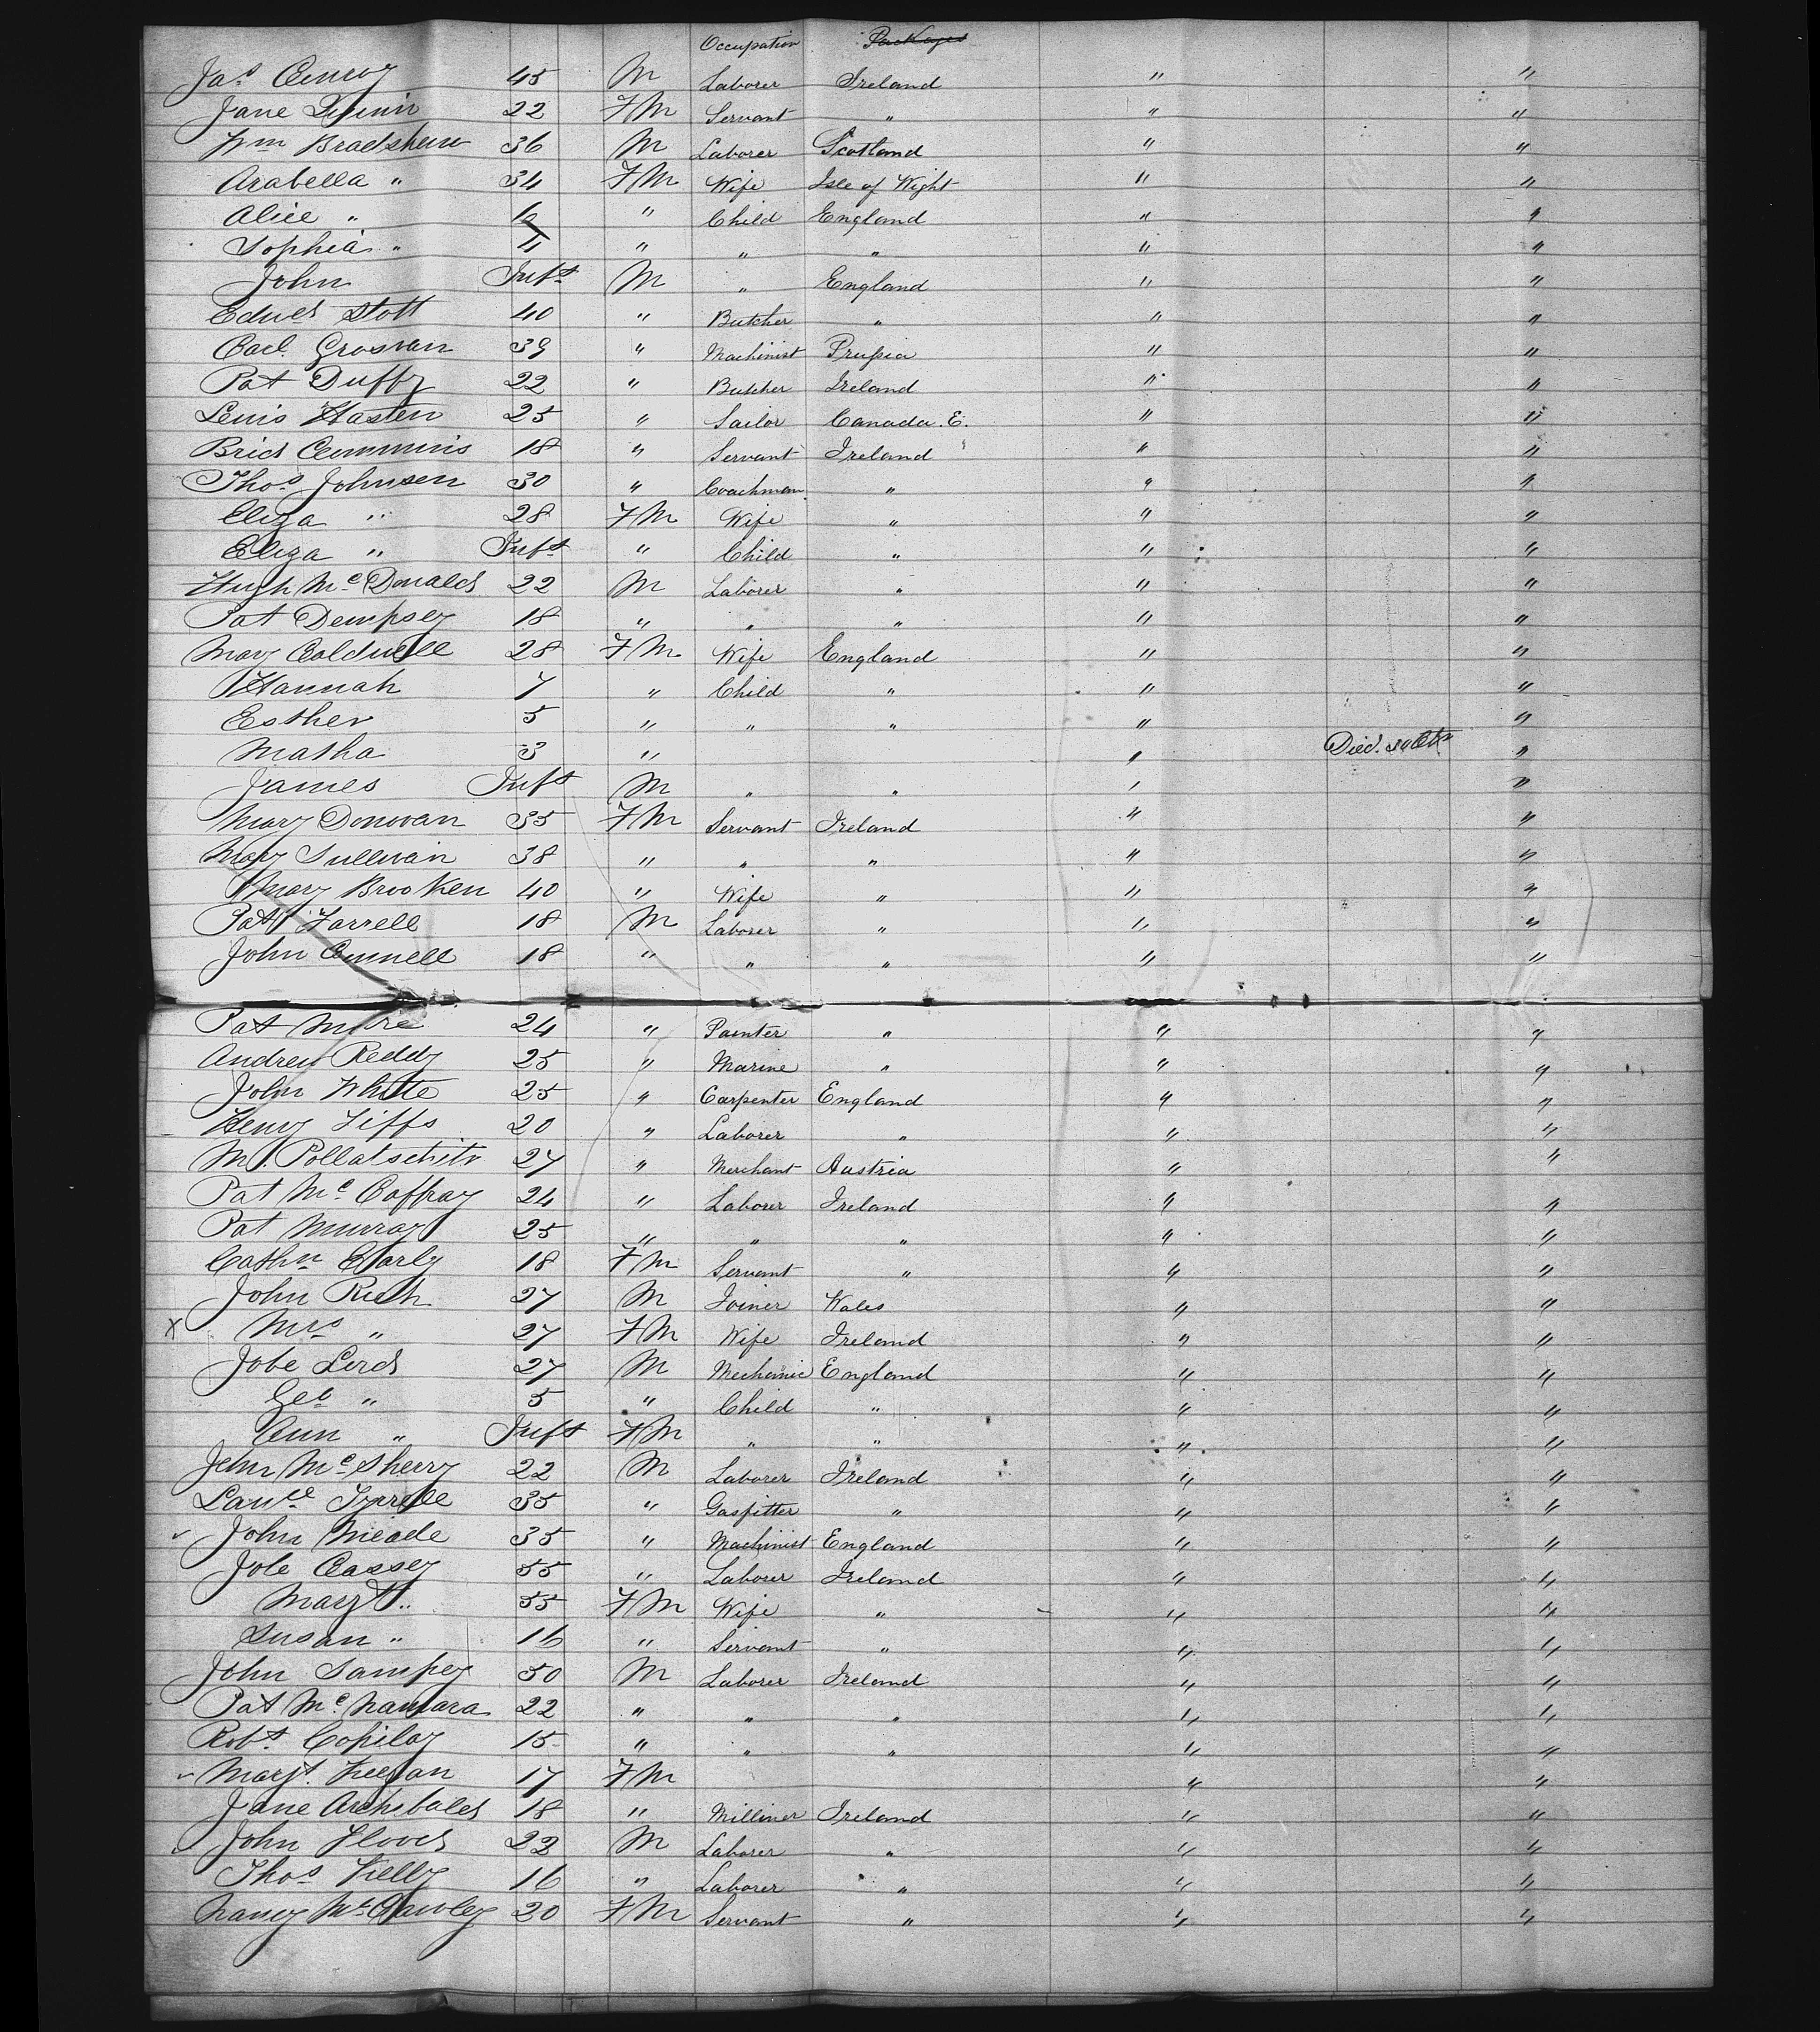 Occupation Packages
Jas Conroy 45 M Laborer Ireland " "
Jane Quinn 22 FM Servant " " "
Wm Bradshaw 36 M Laborer Scotland " "
Arabella " 34 FM Wife Isle of Wight " "
Alice " " Child England " "
Sophia " 4 " " " " "
John Inft M " England " "
Edwd Stott 40 " Butcher " " "
Carl Grosvan 39 " Machinist Prussia " "
Pat Duffy 22 " Butcher Ireland " "
Lewis Hasten 25 " Sailor Canada. E. " "
Brid Cummins 18 " Servant Ireland " "
Thos Johnson 30 " Coachman " " "
Eliza " 28 FM Wife " " "
Eliza " Inft " Child " " "
Hugh Mc Donald 22 M Laborer " " "
Pat Dempsey 18 " " " " "
Mary Caldwell 28 FM Wife England " "
Hannah 7 " Child " " "
Esther 5 " " " " "
Matha 3 " " Died "
James Inft M " " " "
Mary Donovan 35 FM Servant Ireland " "
Mary Sullivan 38 " " " " "
Mary Brooken 40 " Wife " " "
Pat Farrell 18 M Laborer " " "
John Connell 18 " " " " "
Pat Moore 24 " Painter " " "
Andrew Reddy 25 " Marine " " "
John White 25 " Carpenter England " "
Henry Tiffs 20 " Laborer " " "
M. 27 " Merchant Austria " "
Pat Mc Caffray 24 " Laborer Ireland " "
Pat Murray 25 " " " " "
Cathn Early 18 FM Servant " " "
John Rich 27 M Joiner Wales " "
x Mrs " 27 FM Wife Ireland " "
Jobe Lord 27 M Mechanic England " "
Geo " 5 " Child " " "
Ann " Inft FM " " " "
John Mc Sherry 22 M Laborer Ireland " "
Lawce Tyrrell 35 " Gasfitter " " "
John Meade 35 " Machinist England " "
Casey 55 " Laborer Ireland " "
Margt " 55 FM Wife " " "
Susan " 16 " Servant " " "
John Sampey 50 M Laborer Ireland " "
Pat Mc Namara 22 " " " " "
Robt Copiloy 15 " " " " "
Margt. Keegan 17 FM " "
Jane Archibald 18 " Milliner Ireland " "
John Flood 22 M Laborer " " "
Thos Kelly 16 " Laborer " " "
Nancy McCawley 20 FM Servant " " "